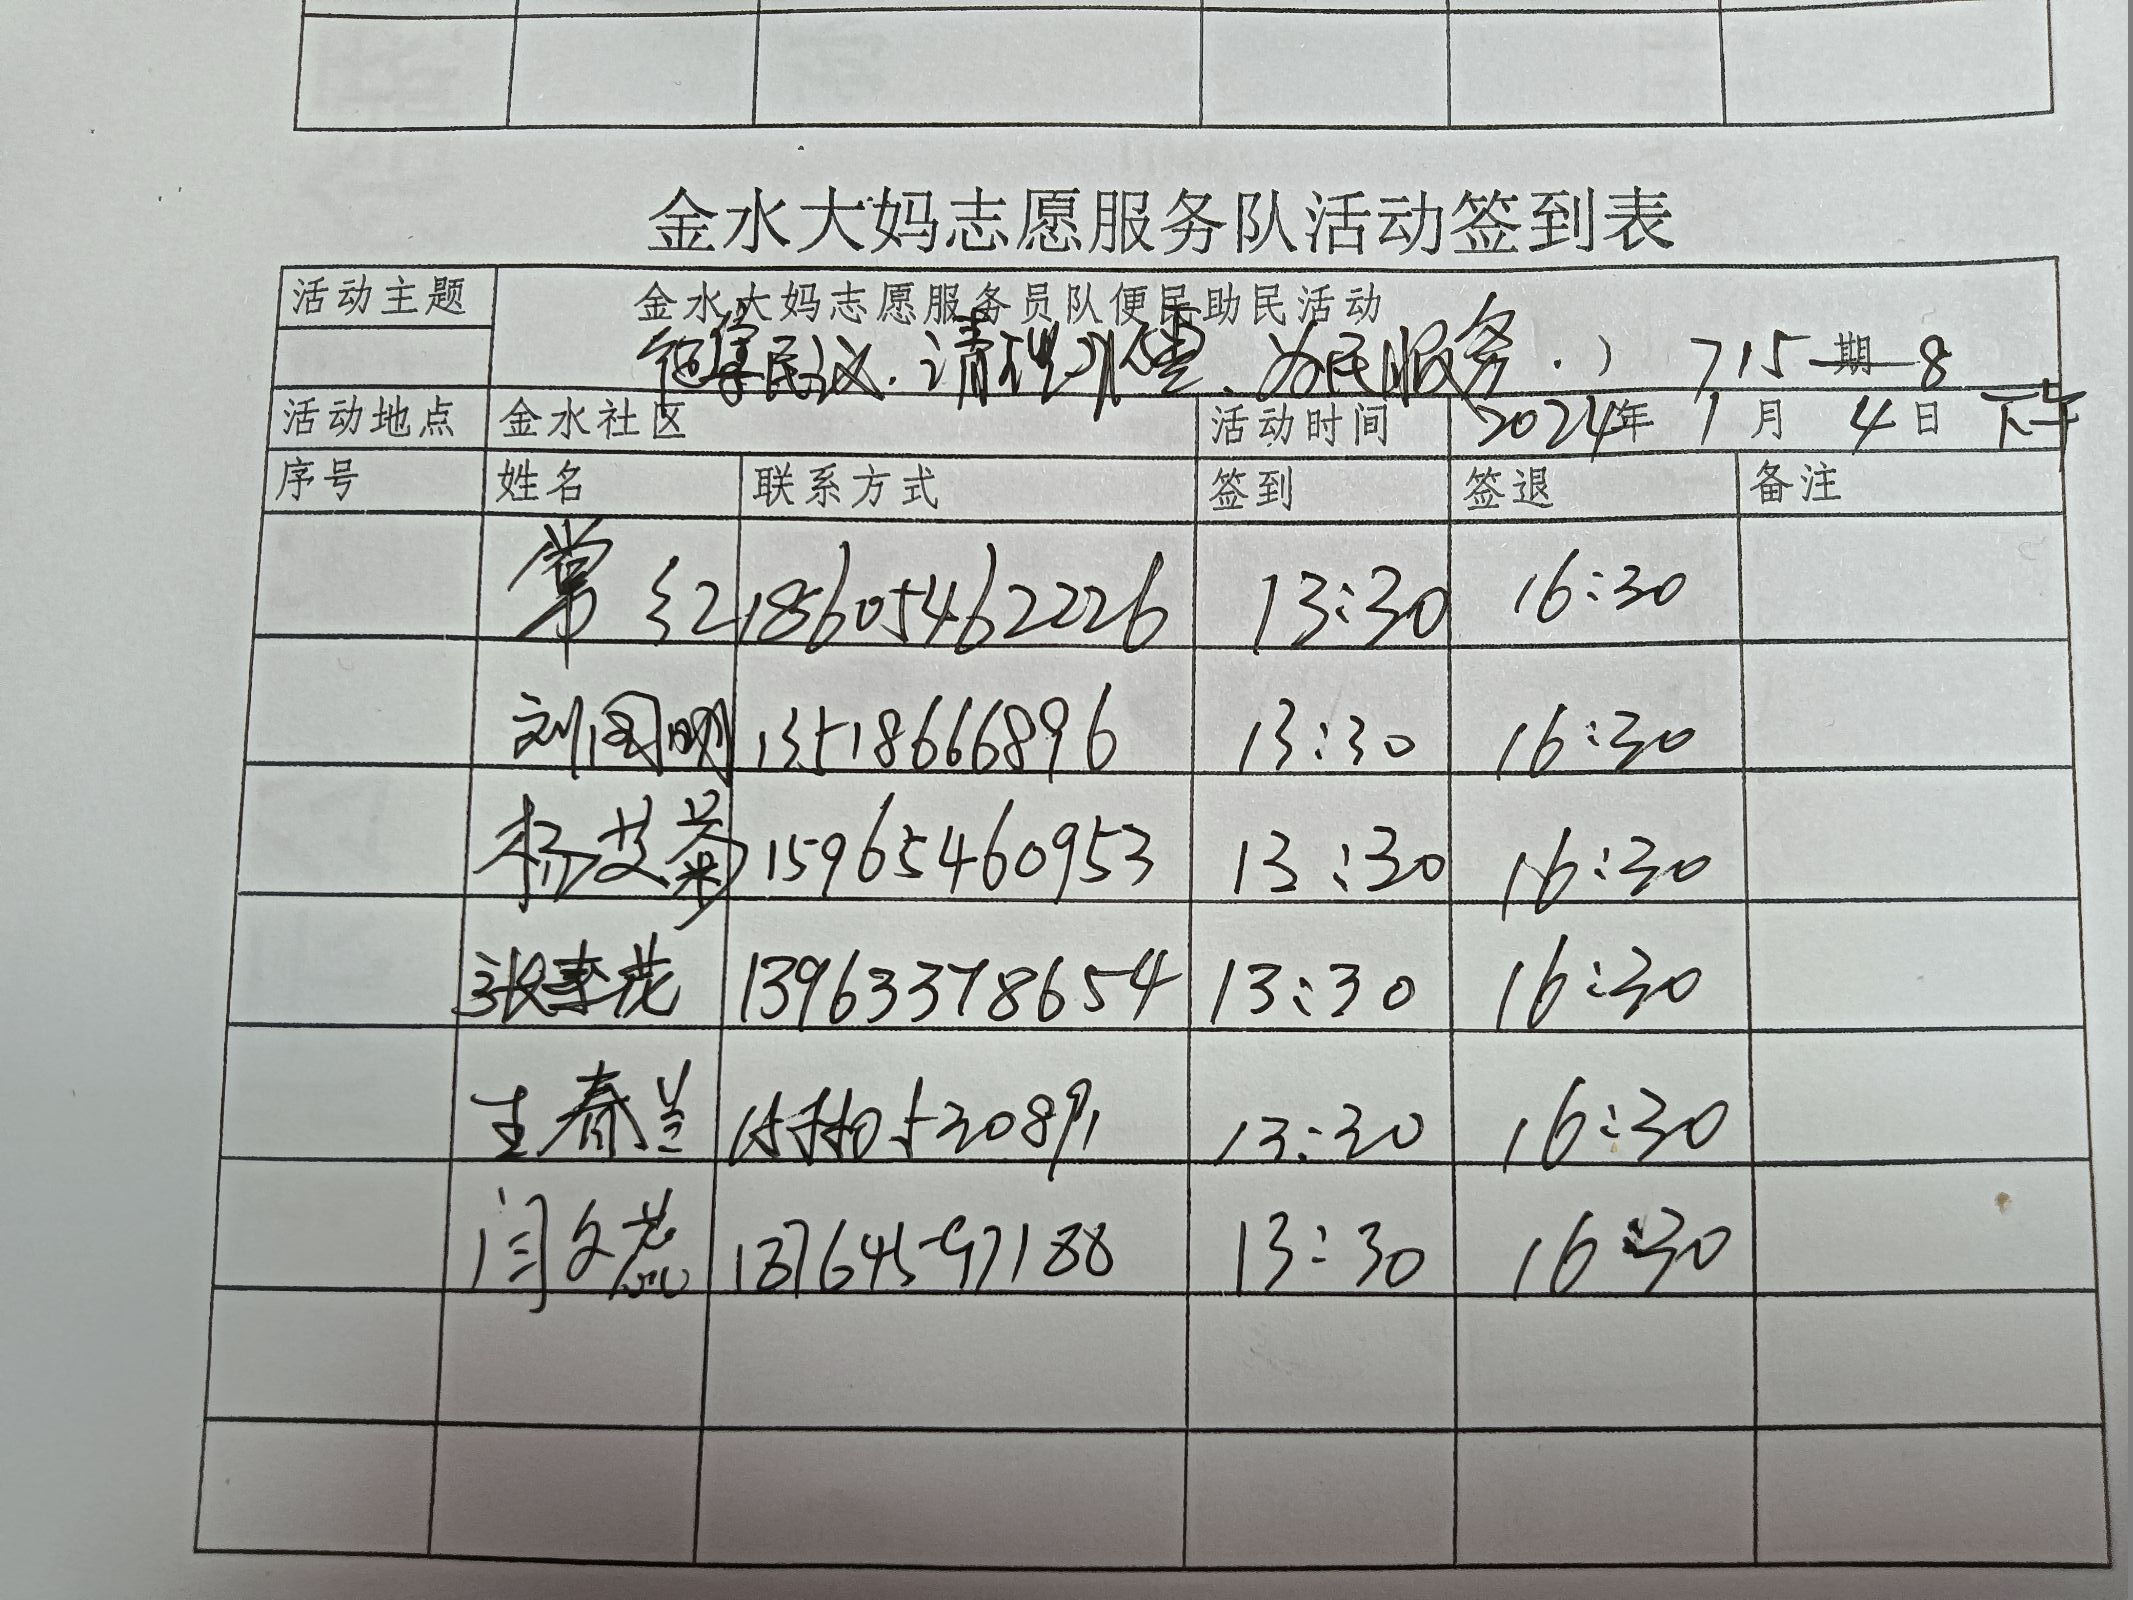 金水大妈志愿服务队活动签到表
活动主题 金水大妈志愿服务员队便民助民活动
民议.清理 为民服务.) 715期 8
活动地点 金水社区 活动时间 2024年 1月 4日 下午
序号 姓名 联系方式 签到 签退 备注
常红 18605462226 13:30 16:30
刘国明 13518666896 13:30 16:30
杨艾菊 15965460953 13:30 16:30
张春花 13963378654 13:30 16:30
王春兰 13:30 16:30
闫文蕊 18764597188 13:30 16:30